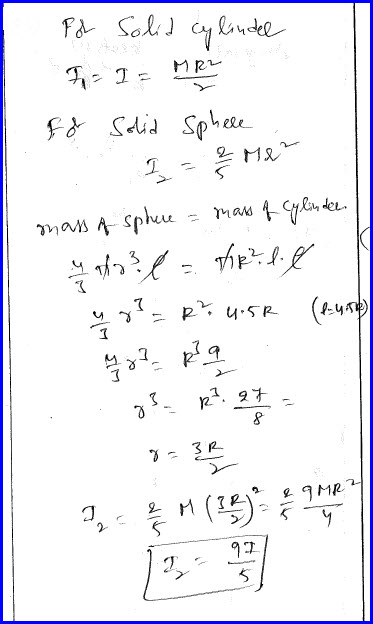 For Solid Cylinder
I₁ = I = MR²/2
For Solid Sphere
I₂ = 2/5 Mr²
mass of sphere = mass of cylinder
4/3 πr³·ρ = πR²·l·ρ
4/3 r³ = R²· 4.5R (l=4.5R)
4/3 r³ = R³ 9/2
r³ = R³· 27/8 =
r = 3R/2
I₂ = 2/5 M (3R/2)² = 2/5 9MR²/4
I₂ = 9I/5